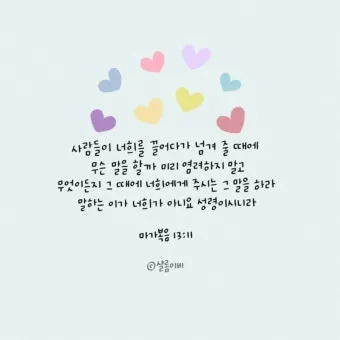 사람들이 너희를 끌어다가 넘겨 줄 때에
무슨 말을 할까 미리 염려하지 말고
무엇이든지 그 때에 너희에게 주시는 그 말을 하라
말하는 이가 너희가 아니요 성령이시니라
마가복음 13:11
©샬롬이비